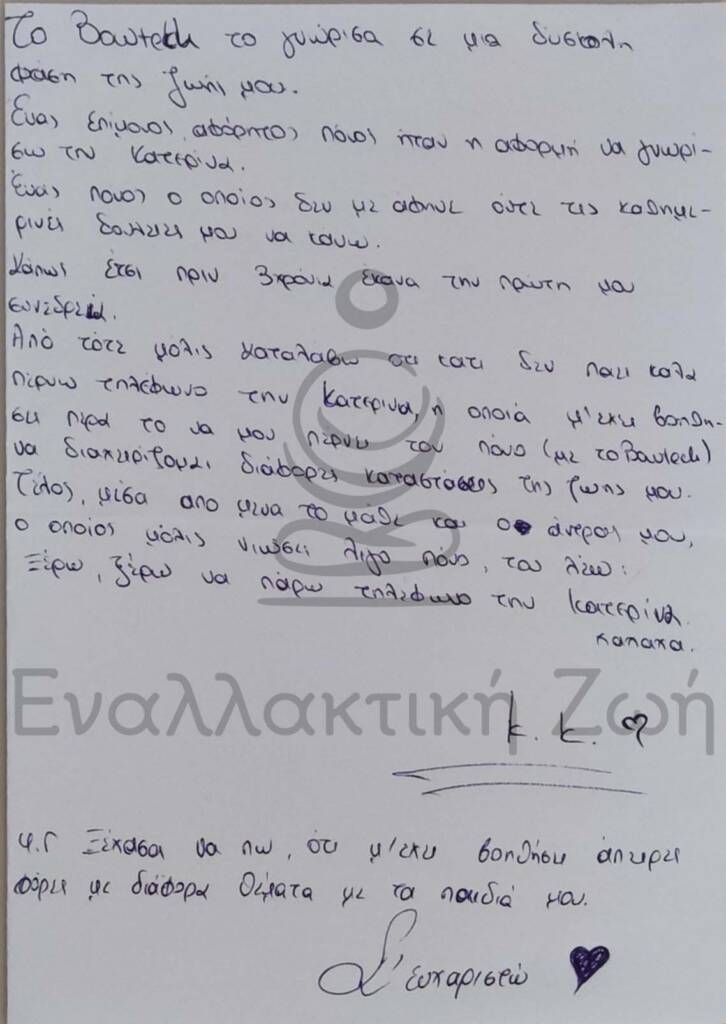 Το Bowtech το γνώρισα σε μια δύσκολη
φάση της ζωής μου.
Ένας επίμονος, αφόρητος πόνος ήταν η αφορμή να γνωρί-
σω την Κατερίνα.
Ένας πονος ο οποίος δεν με αφηνε ούτε τις καθημε-
ρινές δουλειες μου να κανω.
Κάπως έτσι πριν 3 χρόνια έκανα την πρώτη μου
συνεδρεία.
Από τότε μόλις καταλαβω οτι κατι δεν παει καλα
πέρνω τηλέφωνο την Κατερινα, η οποιά μ'εχει βοηθη-
σει πέρα το να μου πέρνει τον πόνο (με το Bowtech)
να διαχειρίζομαι διάφορες καταστάσεις της ζωης μου.
Τέλος, μέσα απο μενα το μάθε και ο άντρας μου,
ο οποίος μόλις νιώσει λίγο πόνο, του λέω:
Ξέρω, ξέρω να πάρω τηλέφωνο την Κατερίνα.
χαχαχα.
Εναλλακτική Ζωή
k. k. ♥
Υ.Γ Ξέχασα να πω, ότι μ'εχει βοηθήσει άπειρες
φόρες με διάφορα θέματα με τα παιδιά μου.
Σ'ευχαριστώ ♥